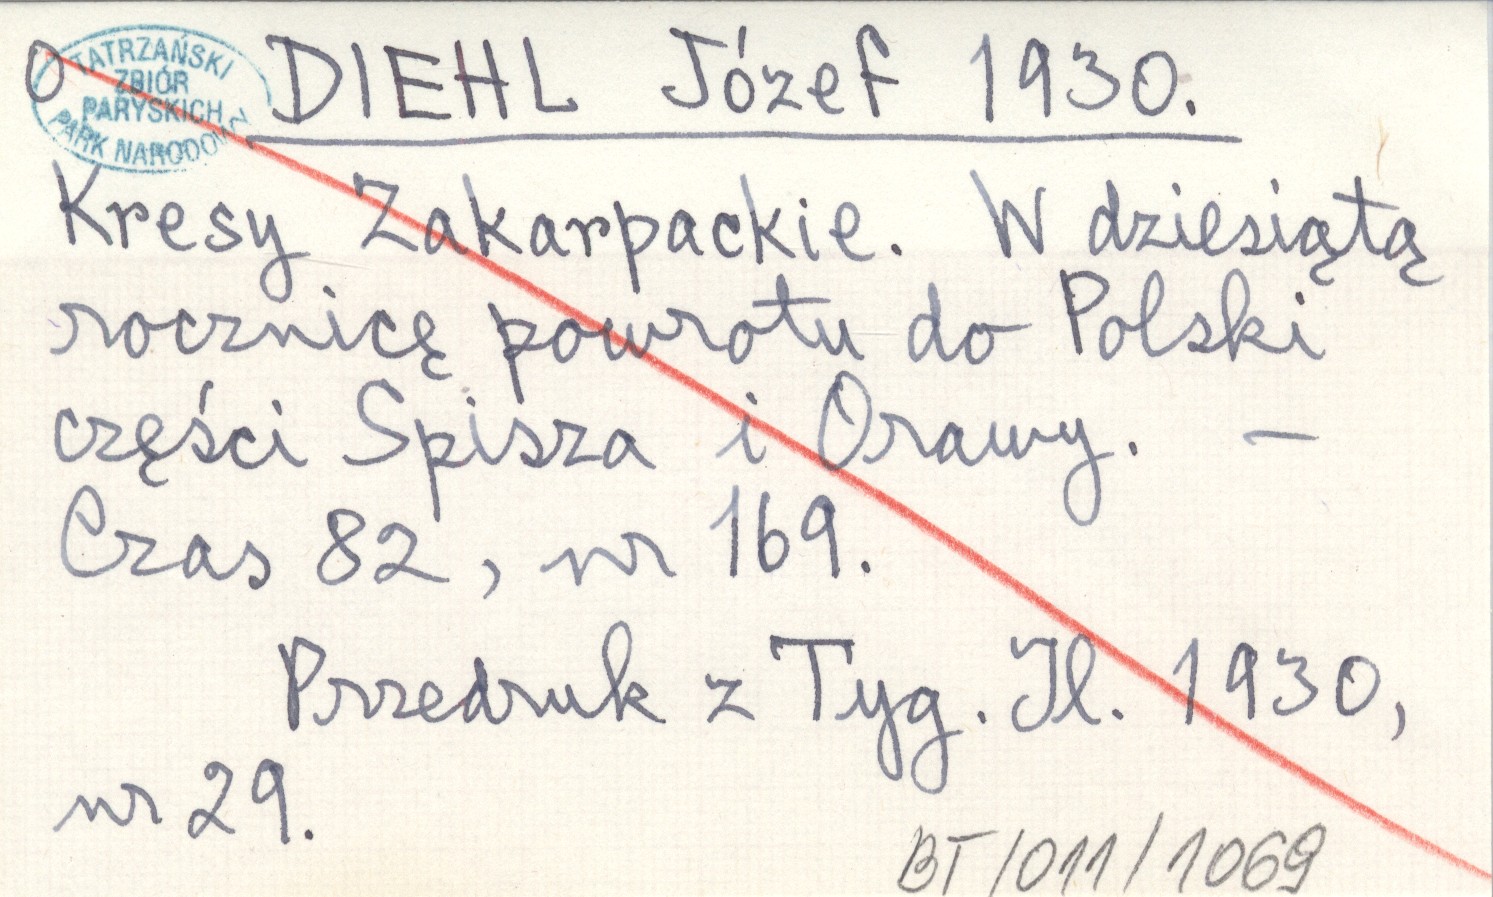 O
TATRZAŃSKI
ZBIÓR
PARYSKICH
PARK NARODOWY
DIEHL Józef 1930.
Kresy Zakarpackie. W dziesiątą
rocznicę powrotu do Polski
części Spisza i Orawy. —
Czas 82, nr 169.
Przedruk z Tyg. Il. 1930,
nr 29.
BT/011/1069